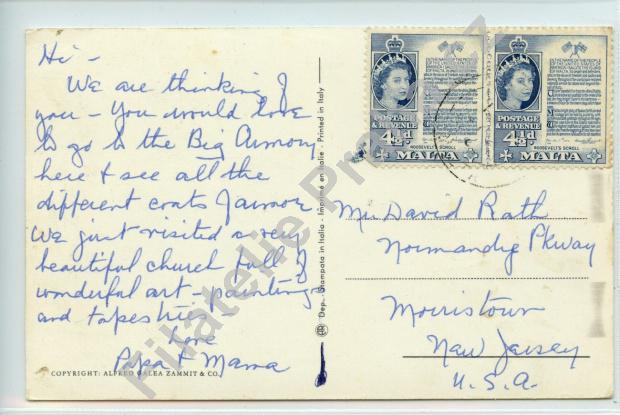 Hi -
We are thinking of
you - You would love
to go to the Big Armory
here & see all the
different coats Jarmor
We just visited a very
beautiful church full of
wonderful art - paintings
and tapestries.
Love
Papa & Mama
COPYRIGHT: ALFRED GALEA ZAMMIT & CO.
Dep. Stampata in Italia - Imprimé en Italie - Printed in Italy
POSTAGE
& REVENUE
4½d
ROOSEVELT'S SCROLL
MALTA
POSTAGE
& REVENUE
4½d
ROOSEVELT'S SCROLL
MALTA
Mr. David Rath
Normandy Pkway
Morristown
New Jersey
U.S.A.